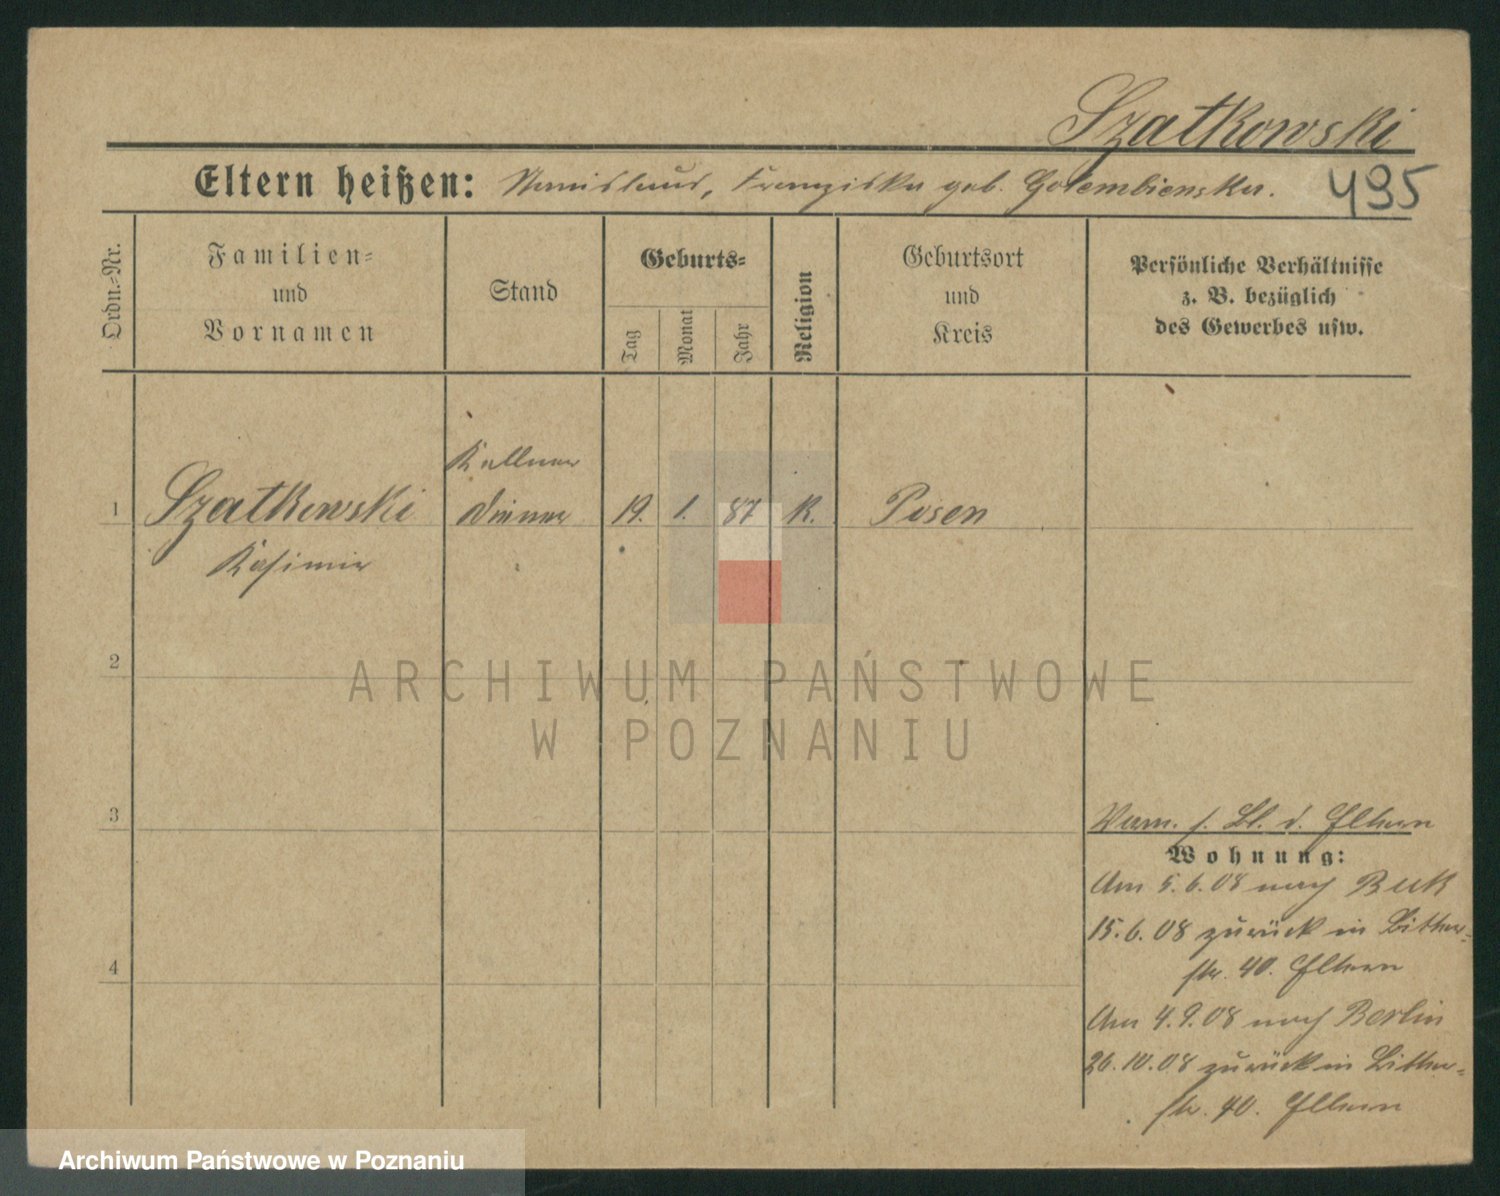 Szatkowski
Eltern heißen: Stanislaus, Franziska geb. Golembienska.
495
Ordn.-Nr.
Familien-
und
Vornamen
Stand
Geburts-
Tag
Monat
Jahr
Religion
Geburtsort
und
Kreis
Persönliche Verhältnisse
z. B. bezüglich
des Gewerbes usw.
Kellner
1 Szatkowski Diener 19. 1. 87 K. Posen
Kasimir
2
ARCHIWUM PAŃSTWOWE
W POZNANIU
3
s. Bl. d. Eltern
Wohnung:
Am 5.6.08 nach Buk
15.6.08 zurück in
4
str. 40. Eltern
Am 4.9.08 nach Berlin
26.10.08 zurück in
str. 40. Eltern
Archiwum Państwowe w Poznaniu